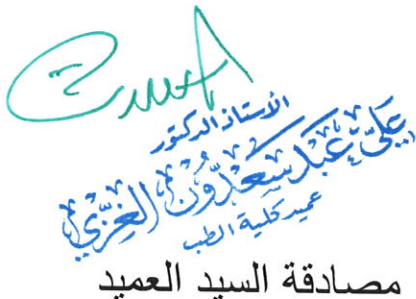 الاستاذ الدكتور
علي عبد سعدون الغزي
عميد كلية الطب
مصادقة السيد العميد